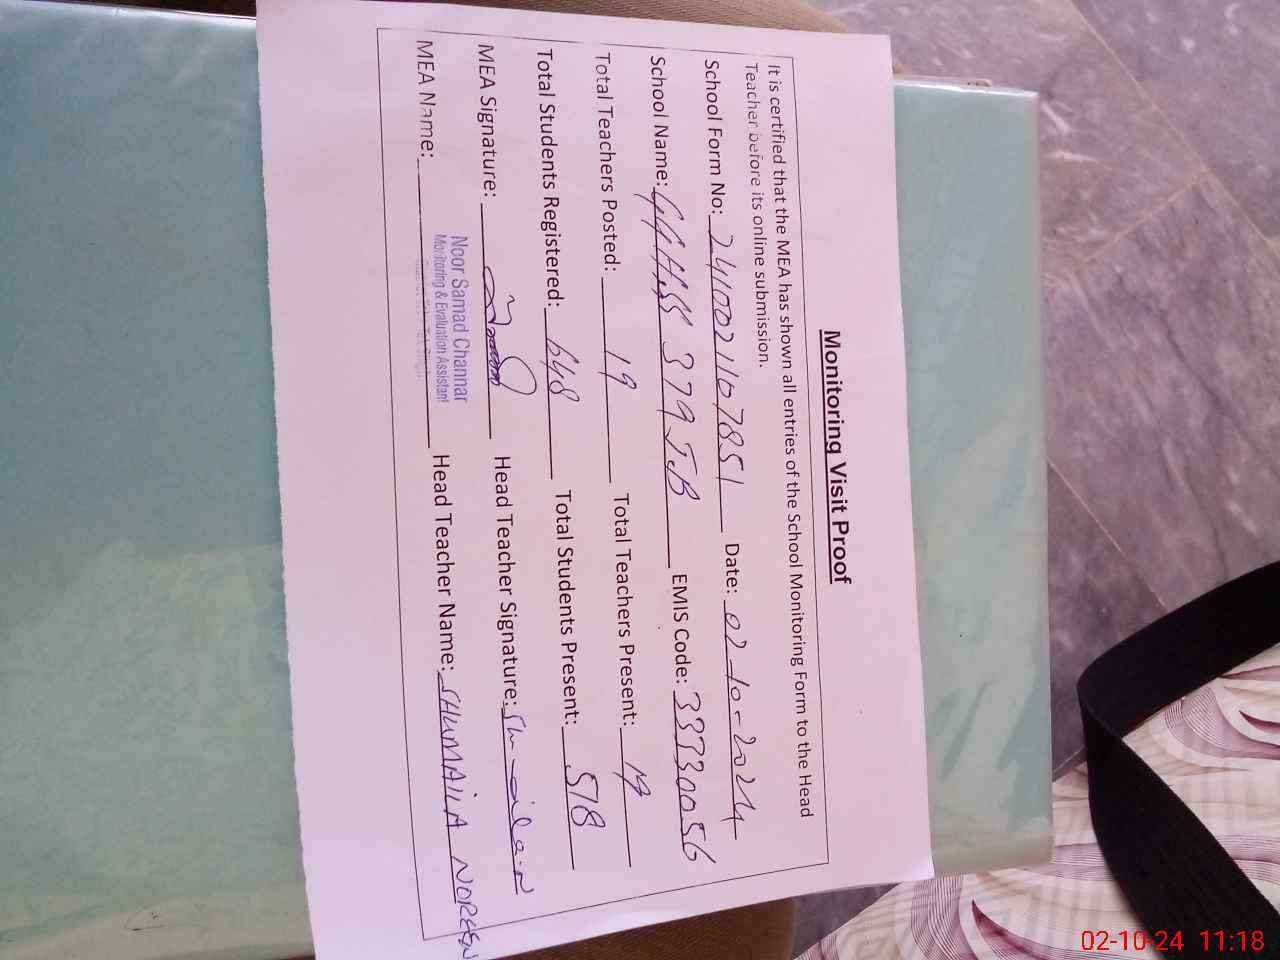 Monitoring Visit Proof
It is certified that the MEA has shown all entries of the School Monitoring Form to the Head
Teacher before its online submission.
School Form No: 2410021107851 Date: 02-10-2024
School Name: GGHSS 379 JB EMIS Code: 33330056
Total Teachers Posted: 19 Total Teachers Present: 19
Total Students Registered: 648 Total Students Present: 518
MEA Signature: Head Teacher Signature:
Noor Samad Channar
Monitoring & Evaluation Assistant
MEA Name: Head Teacher Name: SHUMAILA NOREEN
02-10-24 11:18